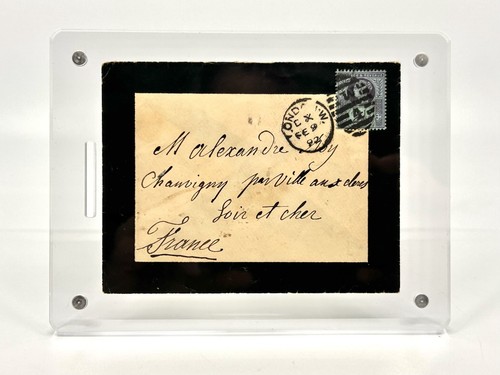 LONDON.W.
C X
FE 9
92
M alexandre
Chauvigny par Ville aux clercs
Loir et cher
France